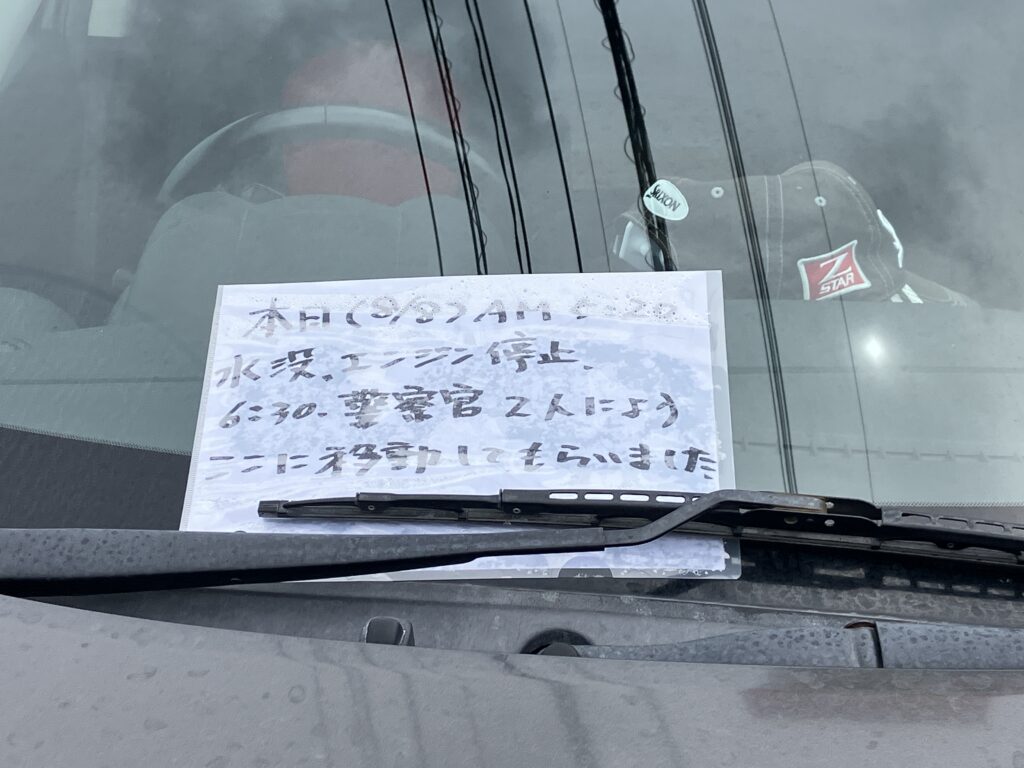 SRIXON
Z
STAR
本日(9/8)AM 5:20
水没、エンジン停止、
6:30、警察官2人によう
ここに移動してもらいました